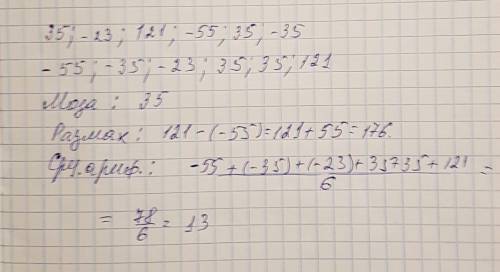 35; -23; 121; -55; 35; -35
-55; -35; -23; 35; 35; 121
Мода: 35
Размах: 121-(-55)=121+55=176.
Ср.ариф.: -55+(-35)+(-23)+35+35+121 / 6 =
= 78/6 = 13